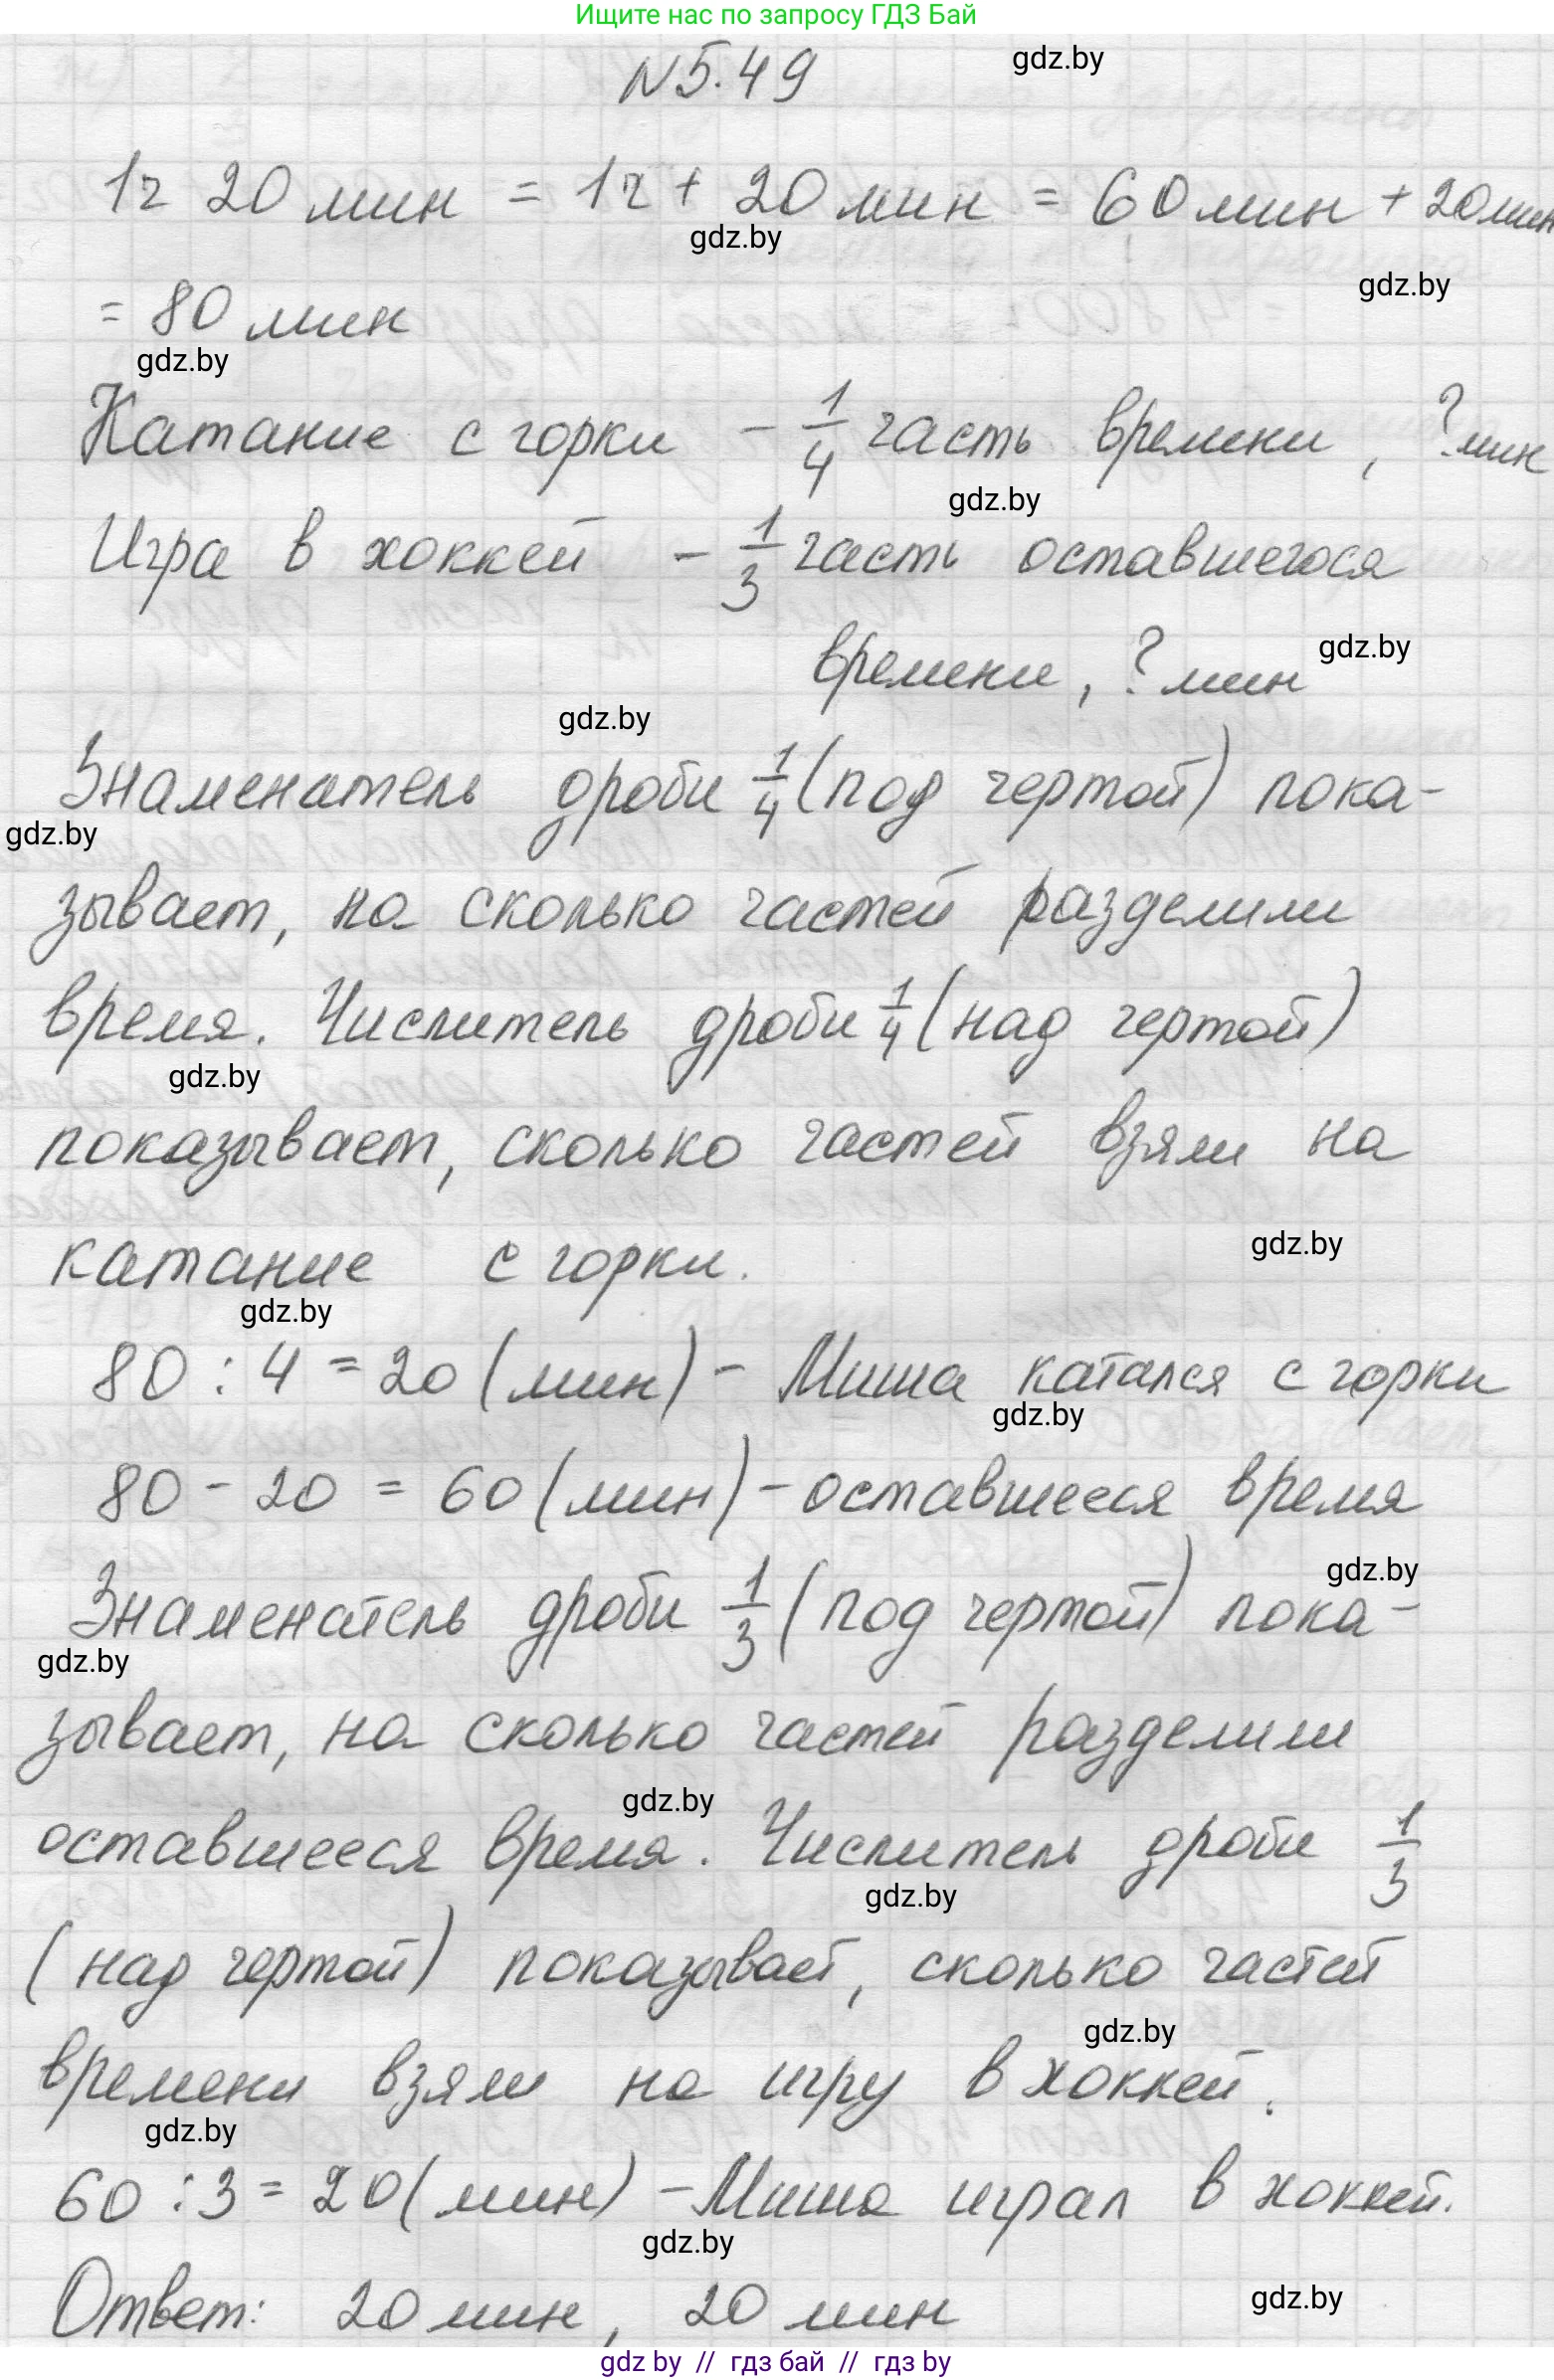 Ищите нас по запросу ГДЗ Бай
N5.49
gdz.by
1ч 20 мин = 1ч + 20 мин = 60 мин + 20 мин
gdz.by
gdz.by
= 80 мин
gdz.by
Катание с горки - 1/4 часть времени, ? мин
gdz.by
Игра в хоккей - 1/3 часть оставшегося
времени, ? мин
gdz.by
gdz.by
Знаменатель дроби 1/4 (под чертой) пока-
gdz.by
зывает, на сколько частей разделили
время. Числитель дроби 1/4 (над чертой)
gdz.by
показывает, сколько частей взяли на
gdz.by
катание с горки.
gdz.by
80 : 4 = 20 (мин) - Миша катался с горки
gdz.by
80 - 20 = 60 (мин) - оставшееся время
gdz.by
Знаменатель дроби 1/3 (под чертой) пока-
gdz.by
зывает, на сколько частей разделили
gdz.by
оставшееся время. Числитель дроби 1/3
gdz.by
(над чертой) показывает, сколько частей
gdz.by
времени взяли на игру в хоккей.
gdz.by
60 : 3 = 20 (мин) - Миша играл в хоккей.
gdz.by
Ответ: 20 мин, 20 мин
gdz.by
gdz by // гдз бай // гдз by